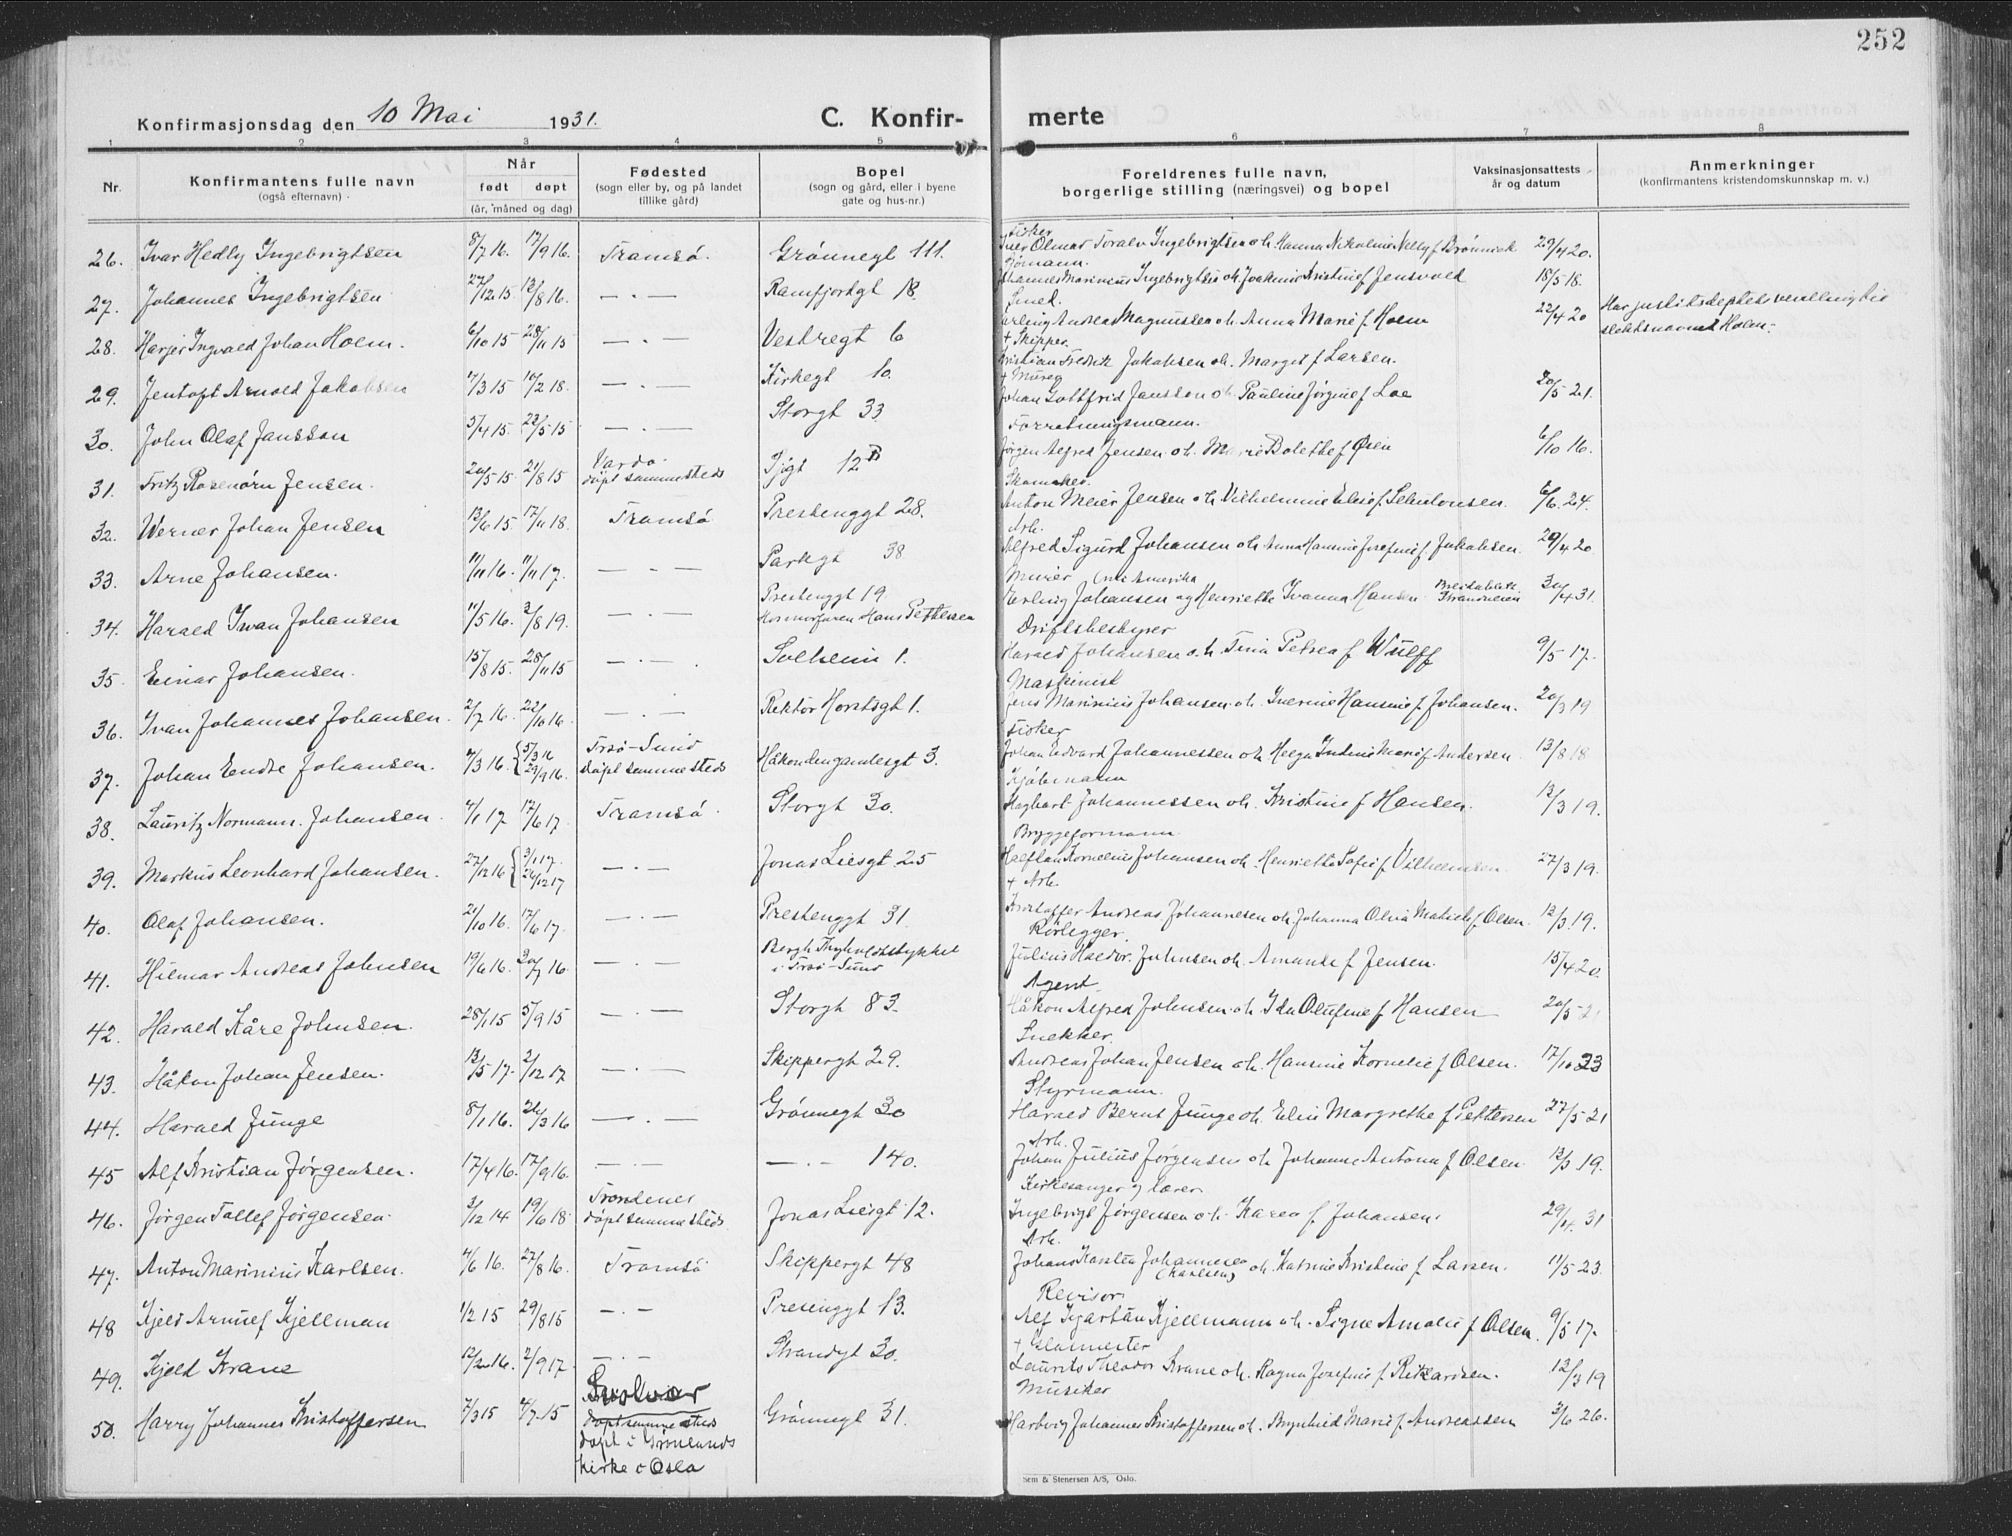 252
Konfirmasjonsdag den 10 Mai 1931.
C. Konfir-
merte
1 2 3 4 5 6 7 8
Nr. Konfirmantens fulle navn (også efternavn) Når født døpt (år, måned og dag) Fødested (sogn eller by, og på landet tillike gård) Bopel (sogn og gård, eller i byene gate og hus-nr.) Foreldrenes fulle navn, borgerlige stilling (næringsvei) og bopel Vaksinasjonsattests år og datum Anmerkninger (konfirmantens kristendomskunnskap m. v.)
26. Ivar Hedly Ingebrigtsen 8/7 16. 17/9 16. Tromsø. Grønnegt 111. Fisker Olmar Toralv Ingebrigtsen o.h. Hanna Nikoline Nelly f. Brønnick 29/4 20.
27. Johannes Ingebrigtsen 27/12 15 13/8 16. — . — Ramfjordgt 18. Johannes Marinius Ingebrigtsen o.h. Jensvold 18/5 18.
28. Ingvald Johan Holm. 6/10 15 28/11 15 — . — Vestregt 6 Erling Andreas Magnussen o.h. Anna Marie f. Holm 22/4 20
29. Jentoft Arnold Jakobsen 7/3 15 10/2 18. — . — Kirkegt 10. + Skipper. Kristian Fredrik Jakobsen o.h. Margit f Larsen.
30. John Olaf Jansson 5/4 15. 23/5 15 — . — Storgt 33 + Murer Johan Gottfrid Jansson o.h. Pauline Jørgine f Loe 20/5 21.
31. Fritz Rosenørn Jensen. 20/5 15 21/8 15 Vardø. døpt sammesteds 12B Forretningsmann. Jørgen Alfred Jensen o.h. Marie Bolette f Øien 6/10 16.
32. Werner Johan Jensen 13/6 15 17/11 18. Tromsø Prestenggt 28. Skomaker. Anton Meier Jensen o.h. Vilhelmine Elise f. 6/6. 24.
33. Arne Johansen. 11/11 16. 11/11 17. — . — Parkgt 38 Arb. Alfred Sigurd Johansen o.h. Anna Hansine Josefine f. Jakobsen. 29/4 20.
34. Harald Iwan Johansen 11/5 16. 3/8 19. — . — Prestenggt 19 Hos morfaren Hans Pettersen Murer i Amerika Erling Johansen og Henriette Ivanna Hansen Strandveien 30/4 31.
35. Einar Johansen. 15/8 15. 28/11 15 — . — Solheim 1. Driftsbestyrer Harald Johansen o.h. Tina Petrea f Wulff 9/5 17.
36. Ivan Johannes Johansen. 2/7 16. 22/10 16 — . — Rektor Horstsgt 1. Maskinist Jens Marinius Johansen o.h. Iverine Hansine f. Johansen. 20/3 19
37. Johan Endre Johansen. 7/3 16. {5/3 16 29/9 16. Trsø-Sund døpt sammesteds Håkon den gamlesgt 3. Fisker Johan Edvard Johannessen o.h. Helga Marie f Andersen 13/8 18
38. Lauritz Normann. Johansen. 4/1 17 17/6 17. Tromsø. Storgt 30. Kjøbmann Hagbart Johannessen o.h. Kristine f Hansen. 13/3 19.
39. Markus Leonhard Johansen. 27/12 16 {3/1 17. 26/12 17 — . — Jonas Liesgt 25 Bryggeformann Halfdan Kornelius Johansen o.h. Henriette Sofie f. Vilhelmsen 27/3 19.
40. Olaf Johansen. 21/10 16. 17/6 17. — . — Prestenggt 31 + Arb. Kristoffer Andreas Johannesen o.h. Johanna Olvia Matilde f. Olsen. 12/3 19.
41. Hilmar Andreas Johnsen 19/6 16. 30/7 16 — . — Bergli i Trsø-Sund Rørlegger. Julius Haldor. Johnsen o.h. Amanda f. Jensen. 15/4 20.
42. Harald Kåre Johnsen. 28/1 15 5/9 15 — . — Storgt 83. Agent. Håkon Alfred Johnsen o.h. Ida Olufine f. Hansen 20/5 2
43. Håkon Johan Jensen. 13/5 17. 2/12 17 — . — Skippergt 29. Snekker. Andreas Johan Jensen o.h. Hansine Kornelie f. Olsen. 17/10 33
44. Harald Junge 8/1 16. 26/3 16 — . — Grønnegt 30 Styrmann. Harald Bernt Junge o.h. Elin Margrethe f Pettersen 27/5 21
45 Alf Kristian Jørgensen. 17/4 16. 17/9 16. — . — — . — 140. Arb. Johan Julius Jørgensen o.h. Johanne Antona f. Olsen 13/3 19.
46. Jørgen Tollef Jørgensen. 3/12 14 19/6 18. Trondenes døpt sammesteds. Jonas Liesgt 12. Kirkesanger og lærer Ingebrigt Jørgensen o.h. Karen f. Johansen. 29/4. 31
47. Anton Marinius Karlsen. 4/6 16. 27/8 16. Tromsø Skippergt 48 Arb. Johans Karsten Johannesen (Karlsen) o.h. Katrine Kristine f. Larsen. 11/5 23.
48 Kjeld Arnulf Kjellman 1/2 15 29/8 15 — . — Presenggt 13. Revisor Alf Kjartan Kjellmann o.h. Signe Amalie f Olsen. 9/5 17.
49. Kjeld Krane 12/2 16. 2/9 17. — . — Strandgt 30. + Glarmester Laurits Theodor Krane o.h. Ragna Josefine f. Rikardsen. 12/3 19
50. Harry Johannes Kristoffersen 7/3 15 4/7. 15 Svolvær døpt sammesteds døpt i Grønlands kirke i Oslo Grønnegt 31. Musiker Hartvig Johannes Kristoffersen o.h. Brynhild Marie f. Andreassen 3/6 26.
Sem & Stenersen A/S, Oslo.